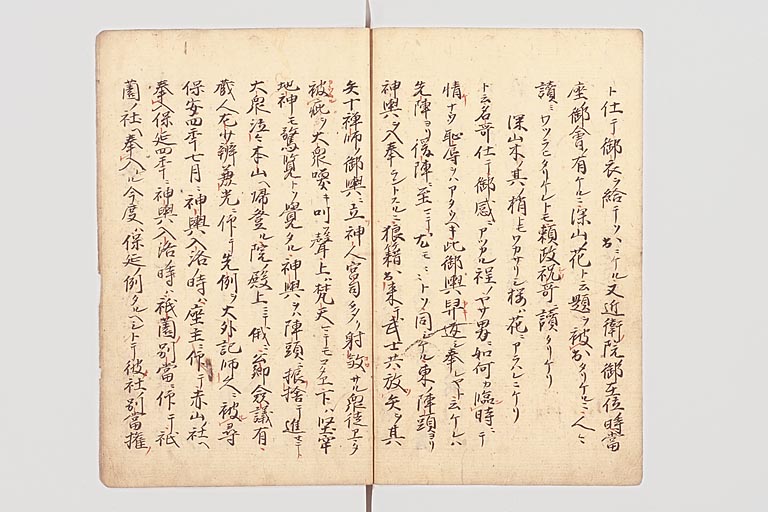 ト仕テ御衣ヲ給テソ出ニケル又近衛院御在位時當
座御會ノ有ケルニ深山ノ花ト云題ヲ被出タリケルニ人々
讀ミワツラヒタリケレトモ頼政秀哥ヲ讀タリケリ
深山木ノ其ノ梢トモワカサリシ桜ハ花ニアラハレニケリ
ト云名哥仕テ御感ニアツカル程ノヤサ男ニ如何カ臨時ニテ
情ナウ恥辱ヲハアタウヘキ此御輿舁返シ奉レヤト云ケレハ
先陣ヨリ後陣ニ至ニテ尤モ々ミトソ同シケル東ノ陣頭ヨリ
神輿ヲ入奉ラントスルニ狼籍出来テ武士共放矢ヲ其
矢十禅師ノ御輿ニ立神人宮司多ク射敦サル衆徒アマタ
被疵ヲ大衆喚キ叫フ聲上ハ梵天ニテモヱ下ハ堅牢
地神モ驚覽トソ覺タル神輿ヲハ陣頭ニ振捨テ進セテ
大衆泣々本山ヘ帰登ル院殿上ニテ俄ニ公卿僉議有
蔵人左少辨兼光ニ仰テ先例ヲ大外記師久ニ被尋
保安四年七月ニ神輿入洛ノ時ハ座主ニ仰テ赤山ノ社ヘ
奉入保延四年ニ神輿入洛ノ時ハ祇薗別當ニ仰テ祇
薗ノ社ヘ奉入ル今度ハ保延ノ例タルヘシトテ彼社ノ別當權